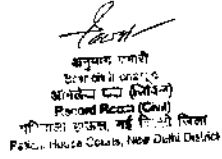 अनुभाग प्रभारी
आभिलेख कक्ष (सिविल)
Record Room (Civil)
पटियाला हाऊस, नई दिल्ली जिला
Patiala House Courts, New Delhi District